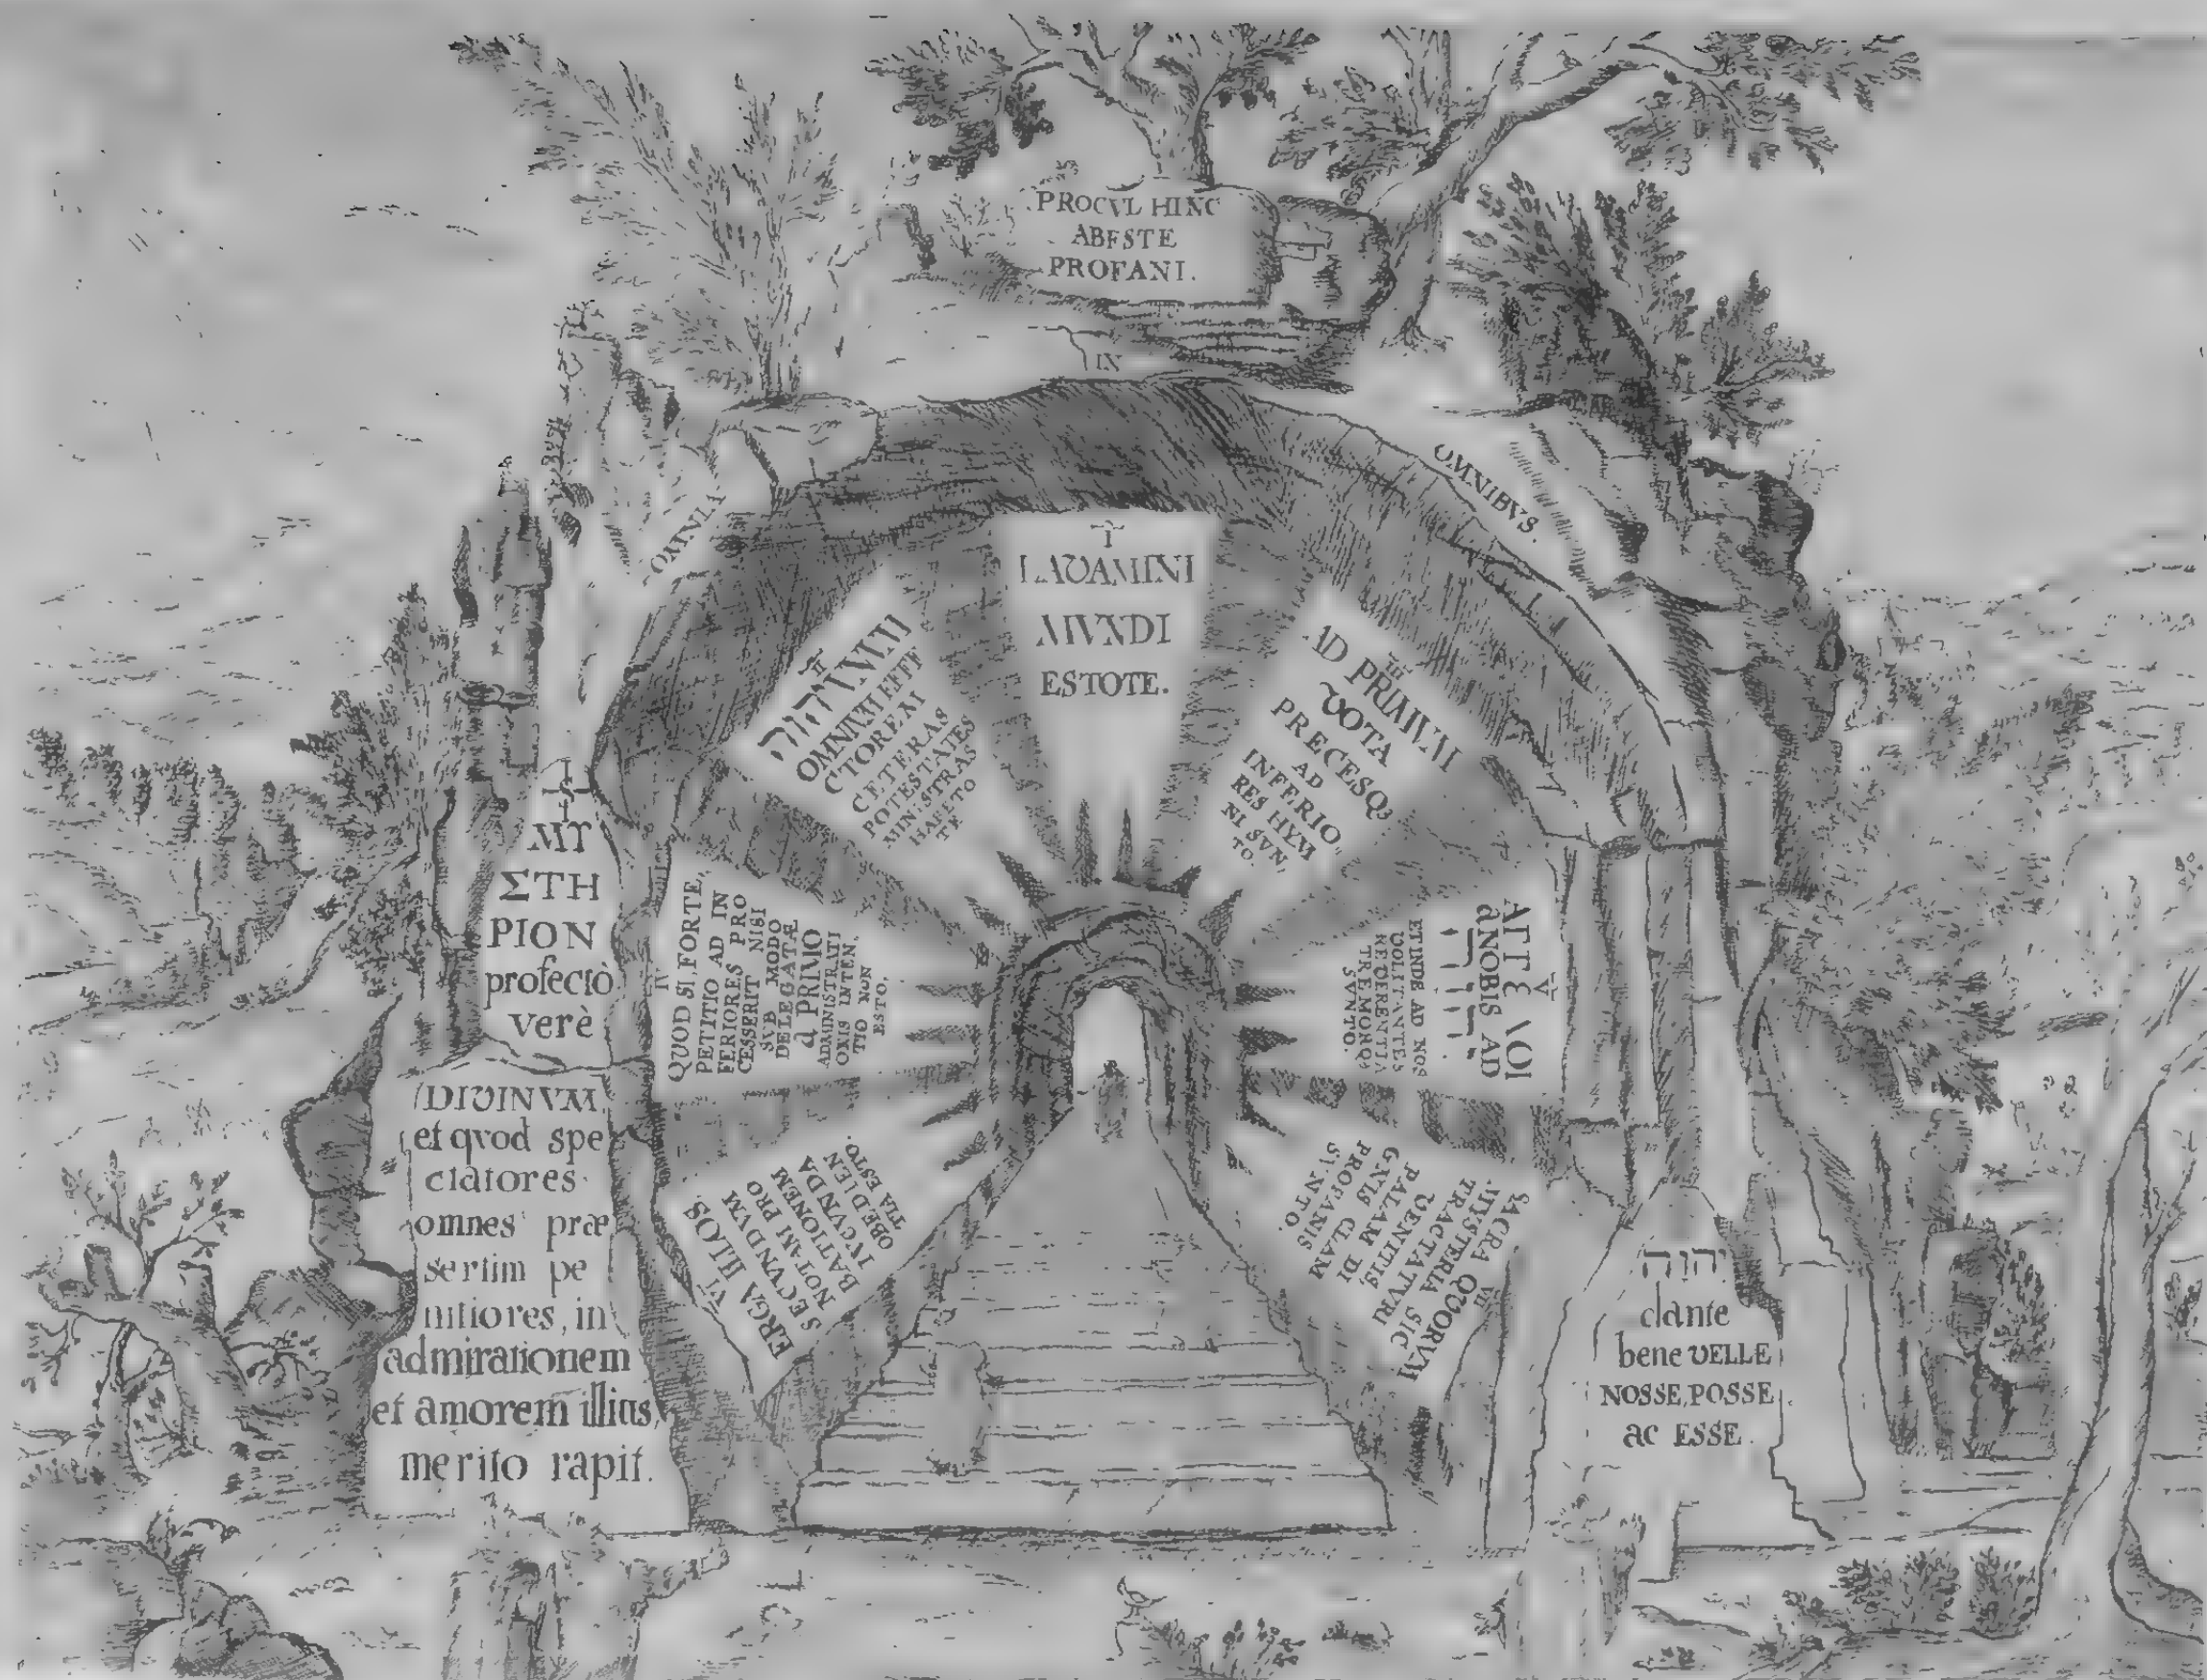 PROCVL HINC
ABESTE
PROFANI.
IX
OMNIA
OMNIBVS.
I
LAVAMINI
MVNDI
ESTOTE.
II
יהוה VNVM
OMNIVM EFFE
CTOREM
CETERAS
POTESTATES
MINISTRAS
HABETO
TE
III
AD PRIMVM
VOTA
PRECESQ3
AD
INFERIO
RES HYM
NI SVN,
TO.
IV
QUOD SI, FORTE,
PETITIO AD IN
FERIORES PRO
CESSERIT NISI
SVB MODO
DELEGATÆ
a PRIMO
ADMINISTRATI
ONIS INTEN,
TIO NON
ESTO.
V
anOBIS AD
ET INDE AD NOS
VOLITANTES
REVERENTIA
TREMORQ3
SVNTO.
VI
ERGA ILLOS
SECVNDVM
NOTAM PRO
BATIONEM
IVCVNDA
OBEDIEN
TIA ESTO.
VII
SACRA QVORVM
MYSTERIA SIC
TRACTATVRI
VENITIS,
PALAM DI
GNIS CLAM
PROFANIS
SVNTO.
ΜΥ
ΣΤΗ
ΡΙΟΝ
profectò
verè
DIVINVM,
et qvod spe
ctatores
omnes præ
sertim pe
nitiores, in
admirationem
et amorem illius,
merito rapit.
יהוה
dante
bene VELLE
NOSSE, POSSE
ac ESSE.